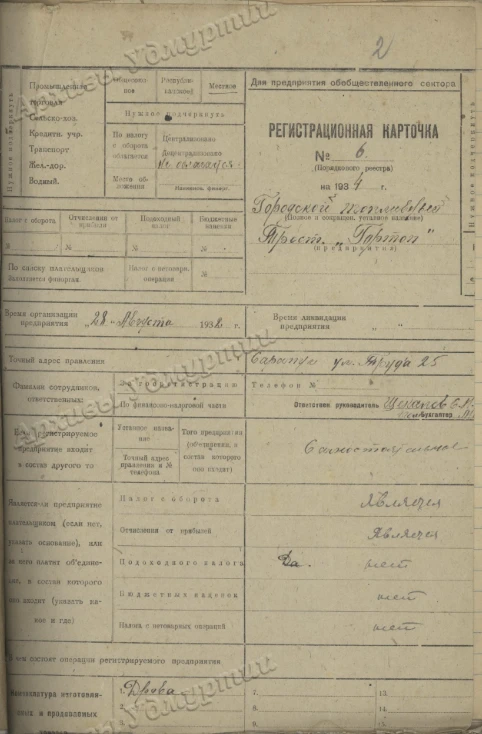 2
Нужное подчеркнуть
Промышленная
торговая
Сельско-хоз.
Кредитн. учр.
Транспорт
Жел-дор.
Водный.
Республи-
канское
Местное
Нужное подчеркнуть
По налогу
с оборота
облагается
Централизованно
Децентрализованно
Не облагается
Место об-
ложения
Для предприятия обобществленного сектора
РЕГИСТРАЦИОННАЯ КАРТОЧКА
№ 6.
(Порядкового реестра)
на 1934 г.
Городской топливный
Трест „Гортоп“
(предприятия)
Налог с оборота
Отчисления от
прибыли
Подоходный
налог
Бюджетные
наценки
№
№
№
№
По списку плательщиков
Налог с нетоварн.
операции
№
Время организации
предприятия
„28“ Августа 1932 г.
Время ликвидации
предприятия
„ „
Точный адрес правления
Сарапул ул. Труда 25
Фамилии сотрудников,
ответственных:
За регистрацию
По финансово-налоговой части
Телефон №
Ответствен. руководитель
бухгалтер
регистрируемое
предприятие входит
в состав другого то
Уставное назва-
ние
Точный адрес
правления и №
телефона
Того предприятия
(об'единения, в
состав которого
оно входит)
Самостоятельное
Является ли предприятие
плательщиком (если нет,
указать основание), или
за него платит об'едине-
ние, в состав которого
оно входит (указать ка-
кое и где)
Налог с оборота
Является
Отчисления от прибылей
Является
Подоходного налога
Да. нет
Бюджетных наценок
нет
Налога с нетоварных операций
нет
В чем состоят операции регистрируемого предприятия
Номенклатура изготовля-
емых и продаваемых
1. Дрова
2.
3.
7.
8.
9.
13.
14.
15.
Архивы Удмуртии
Архивы Удмуртии
Архивы Удмуртии
Архивы Удмуртии